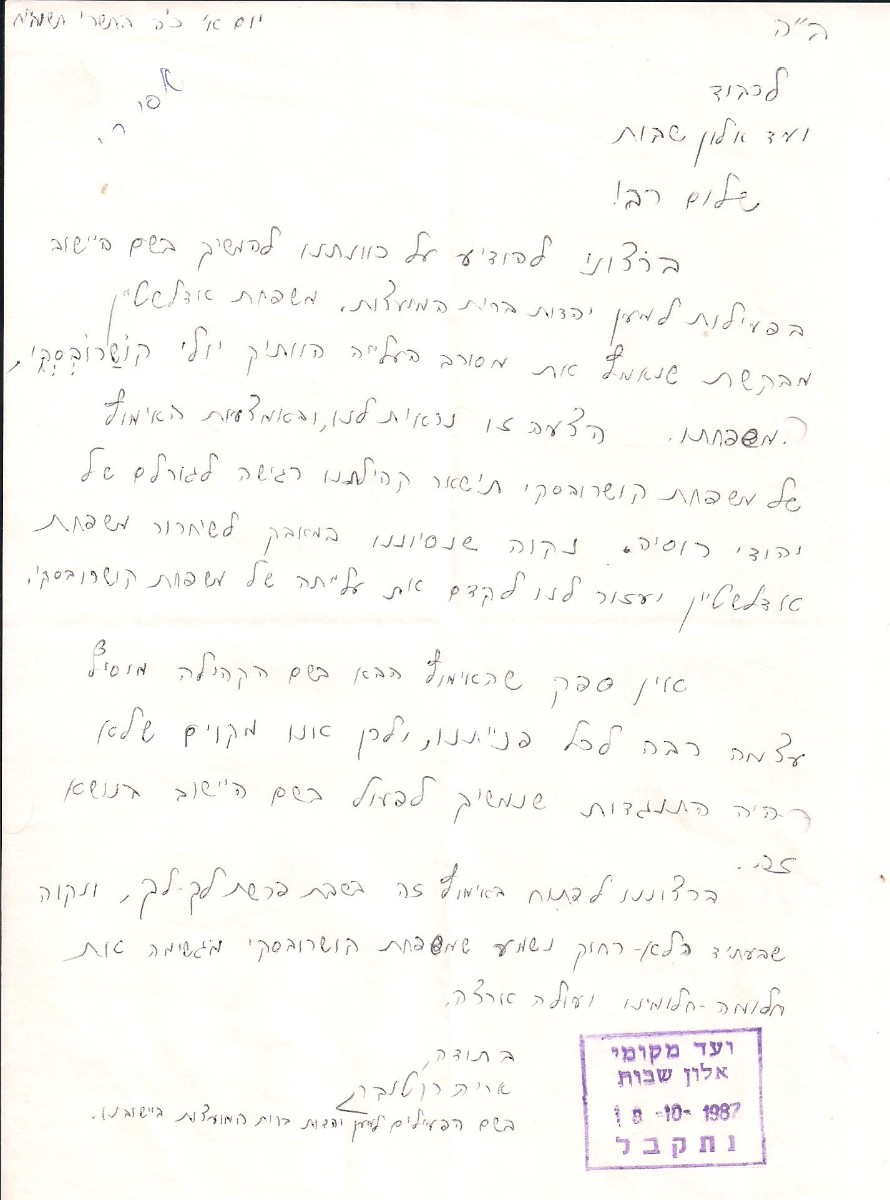 ב"ה
יום א' כ"ה בתשרי תשמ"ח
לכבוד
ועד אלון שבות
שלום רב!
ברצוני להודיע על כוונתנו להמשיך בשם היישוב
בפעילות למען יהדות ברית המועצות. משפחת אדלשטיין
מבקשת שנאמץ את מסורב העלייה הוותיק יולי קוֹשָרוֹבְסְקִי,
ומשפחתו. הצעה זו נראית לנו, ובאמצעות האימוץ
של משפחת קושרובסקי תישאר קהילתנו רגישה לגורלם של
יהודי רוסיה. נקוה שנסיוננו במאבק לשיחרור משפחת
אדלשטיין יעזור לנו לקדם את עלייתה של משפחת קושרובסקי.
אין ספק שהאימוץ הבא בשם הקהילה מוסיף
עצמה רבה לכל פנייתנו, ולכן אנו מקוים שלא
תהיה התנגדות שנמשיך לפעול בשם היישוב בנושא
זה.
ברצוננו לפתוח באימוץ זה בשבת פרשת לך-לך, ונקוה
שבעתיד הלא-רחוק נשמע שמשפחת קושרובסקי מגשימה את
חלומה-חלומינו ועולה ארצה.
בתודה,
אריה רוטנברג
בשם הפעילים למען יהדות ברית המועצות ביישובנו.
ועד מקומי
אלון שבות
-10- 1987
נתקבל